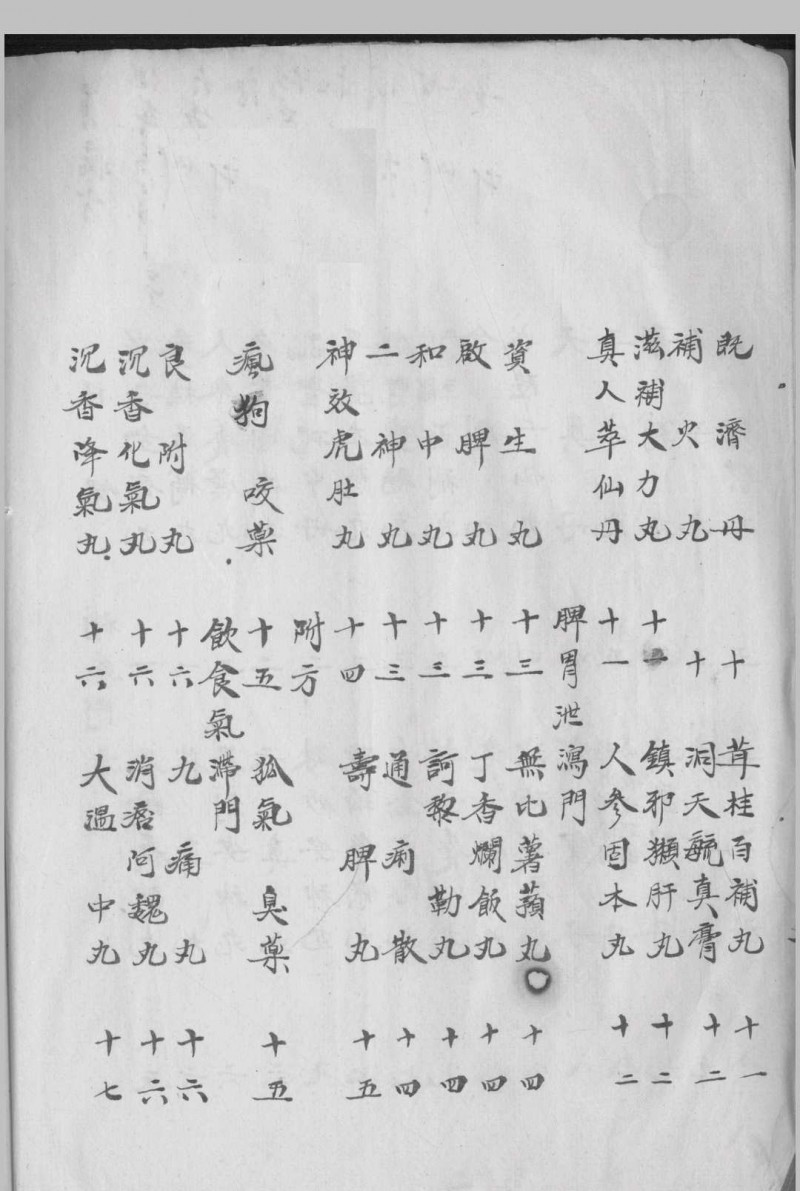 既濟丹 十 茸桂百補丸 十一
補火丸 十 洞天毓真膏 十二
滋補大力丸 十一 鎮邪獺肝丸 十二
真人萃仙丹 十一 人參固本丸 十二
脾胃泄瀉門
資生丸 十三 無比薯蕷丸 十四
啟脾丸 十三 丁香爛飯丸 十四
和中丸 十三 訶黎勒丸 十四
二神丸 十三 通痢散 十四
神效虎肚丸 十四 壽脾丸 十五
附方
瘋狗咬藥 十五 狐氣臭藥 十五
飲食氣滯門
良附丸 十六 九痛丸 十六
沉香化氣丸 十六 消痞阿魏丸 十六
沉香降氣丸 十六 大溫中丸 十七